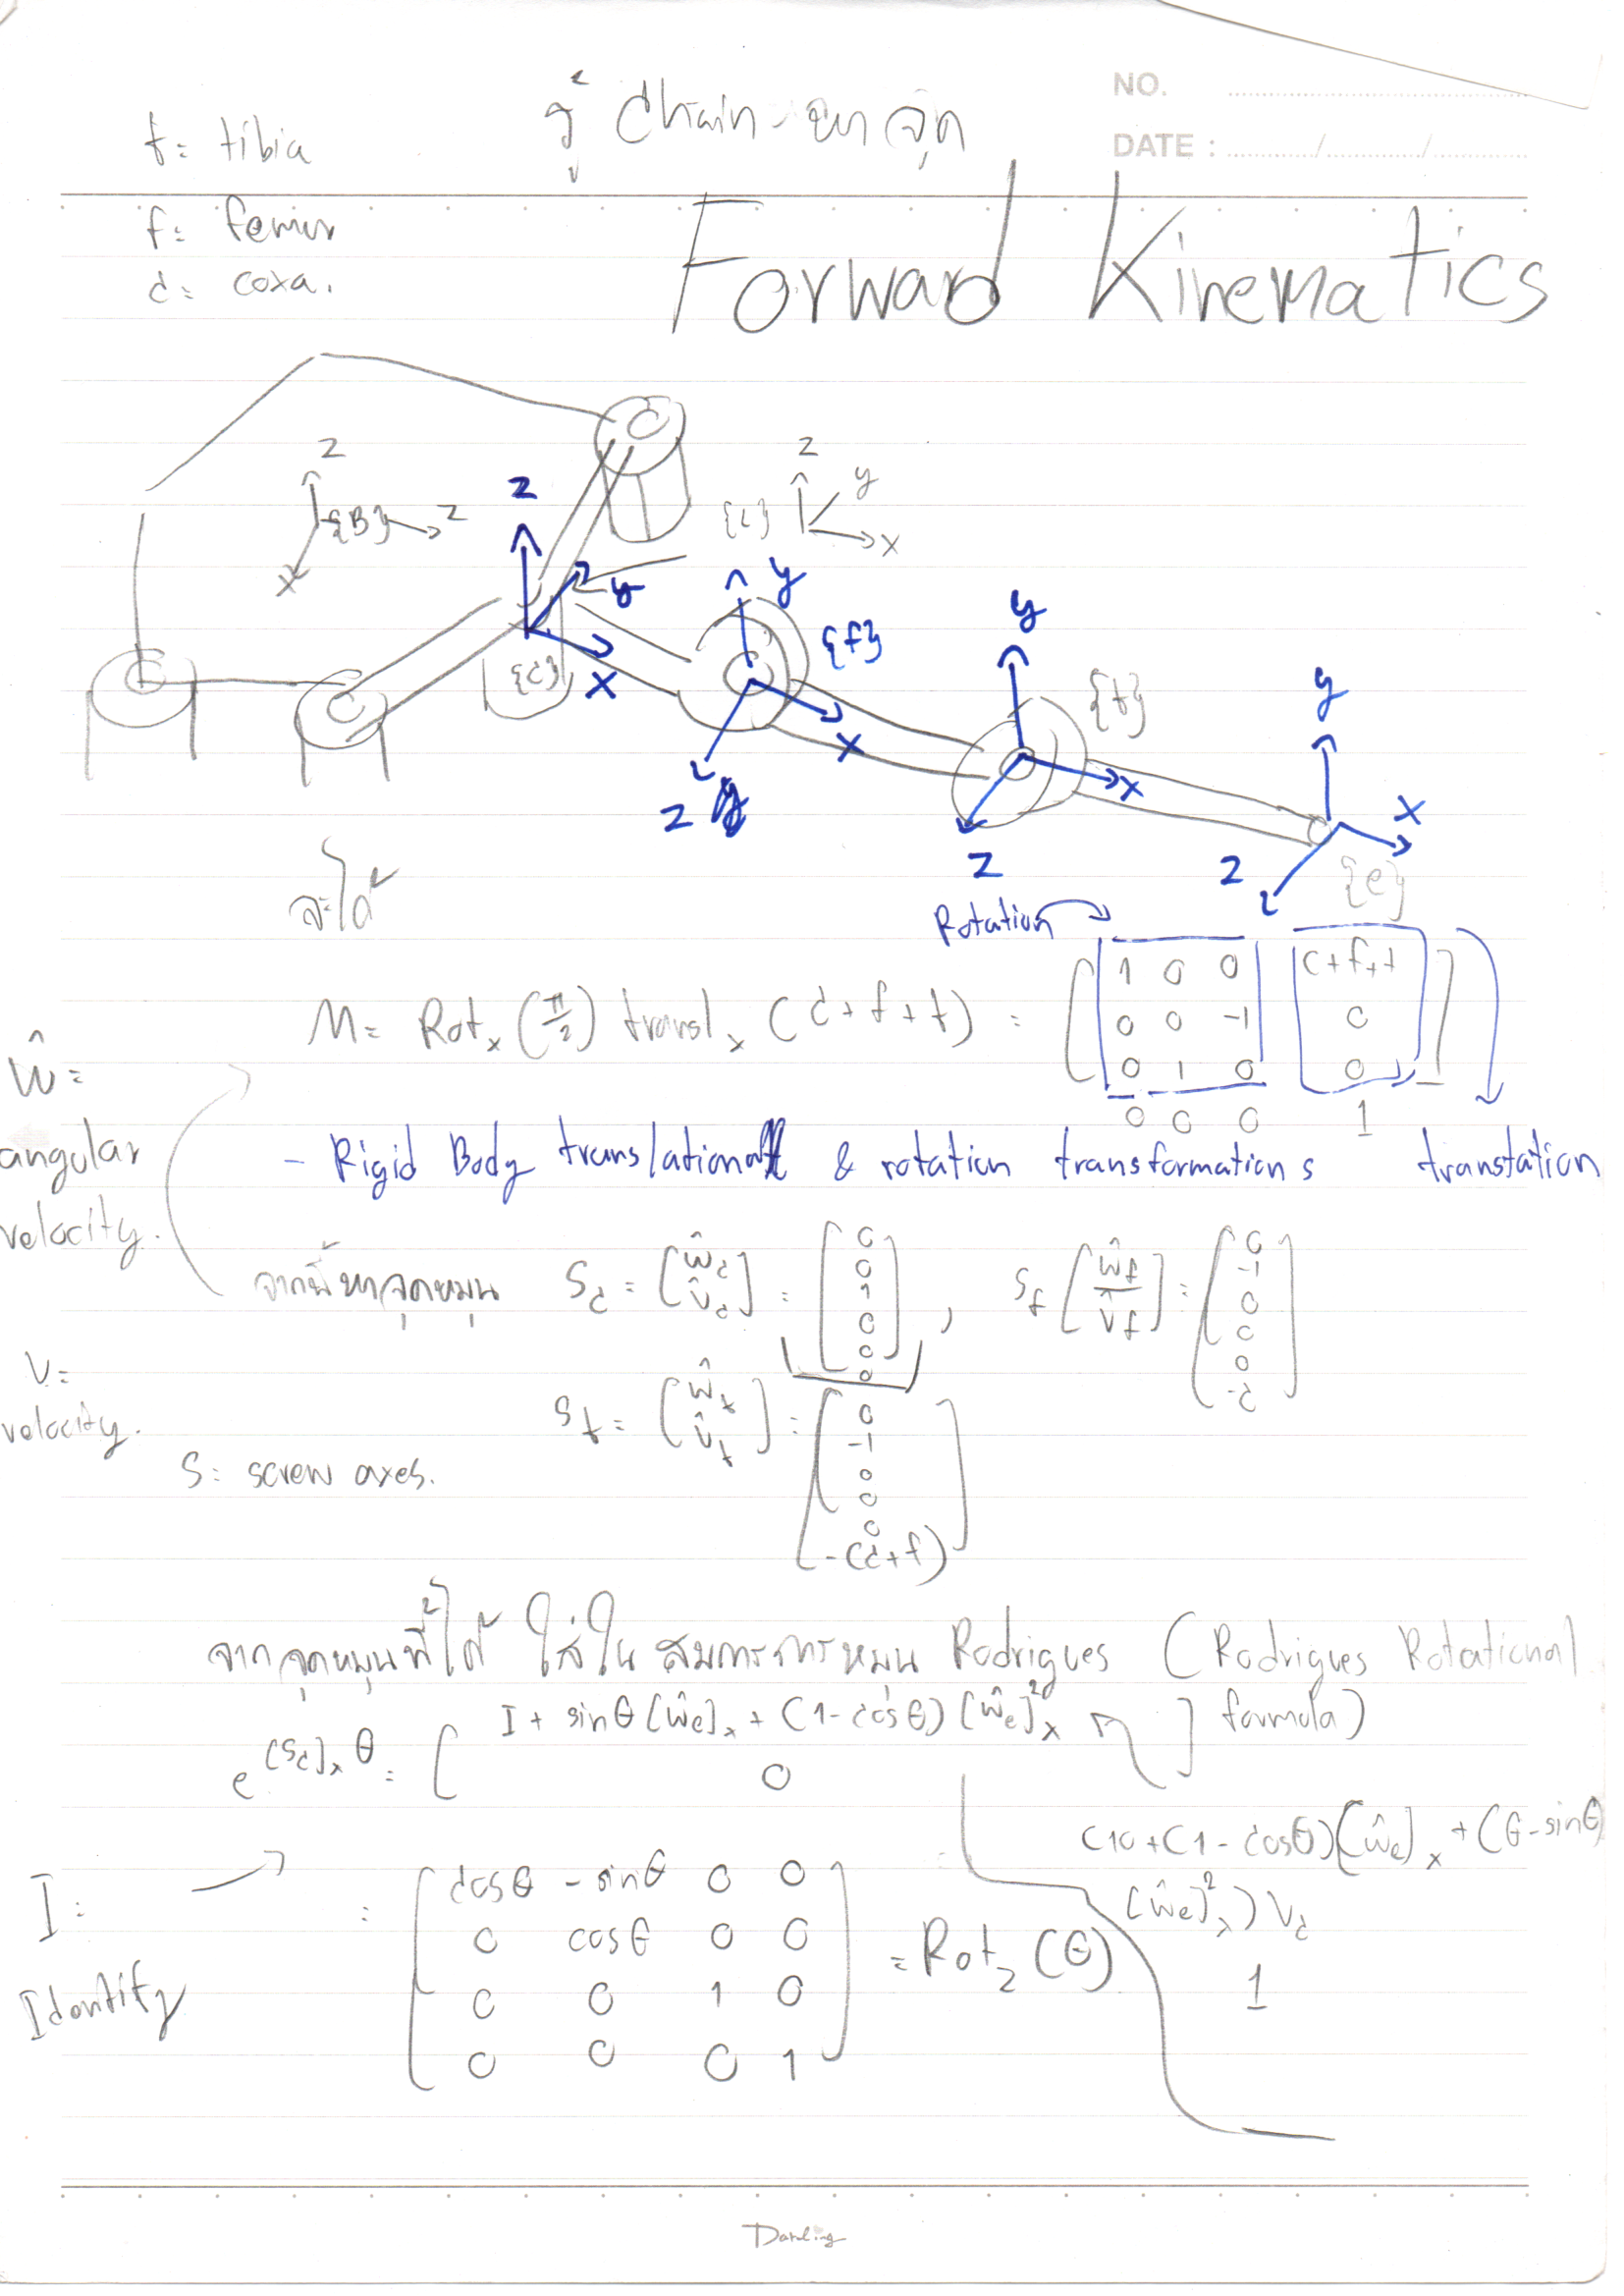 NO.
DATE :
รู้ chain → หา จุด
t = tibia
f = femur
c = coxa.
Forward Kinematics
z
{B} z
x
{L} z y x
z y x {c}
y {f} x z
y {t} x z
y x z {e}
จะได้
Rotation
M = Rotₓ (π/2) translₓ (c + f + t) = [ 1 0 0 c+f+t
0 0 -1 0
0 1 0 0
0 0 0 1 ]
- Rigid Body translation & rotation transformations translation
ŵ =
angular
velocity.
จากนี้หาจุดหมุน S_c = [ŵ_c v̂_c] = [0 0 1 0 0 0] , S_f [ŵ_f v̂_f] = [0 -1 0 0 0 -c]
v =
velocity.
S_t = [ŵ_t v̂_t] = [0 -1 0 0 0 -(c+f)]
S = screw axes.
จากจุดหมุนที่ได้ ใส่ใน สมการการหมุน Rodrigues (Rodrigues Rotational
formula)
e^[S_c]ₓθ = [ I + sinθ [ŵc]ₓ + (1-cosθ) [ŵc]²ₓ ]
0
(Iθ + (1 - cosθ) [ŵc]ₓ + (θ - sinθ)
[ŵc]²ₓ) V_c
1
I =
Identity
= [ cosθ -sinθ 0 0
0 cosθ 0 0
0 0 1 0
0 0 0 1 ] = Rot_z (θ)
Darling